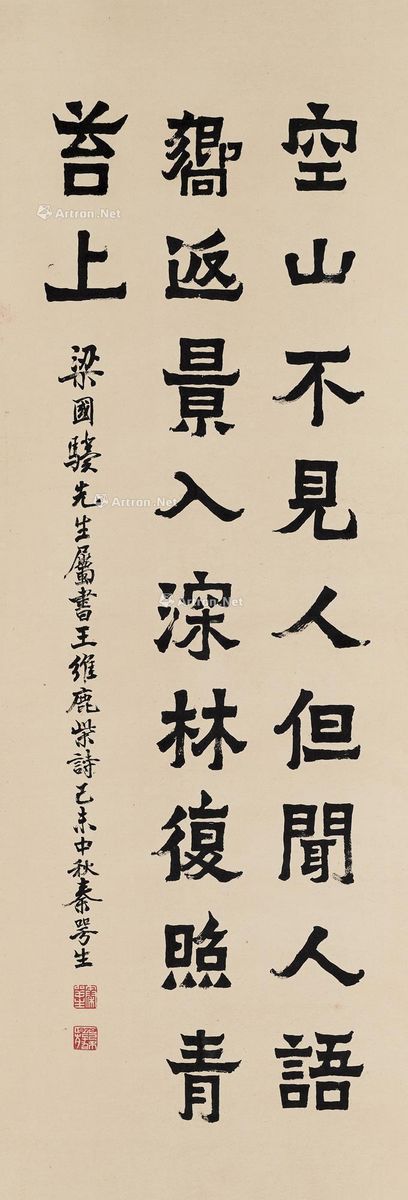 空山不見人但聞人語
嚮返景入深林復照青
苔上
梁國驥先生屬書王維鹿柴詩己未中秋秦咢生
Artron.Net
Artron.Net
Artron.Net